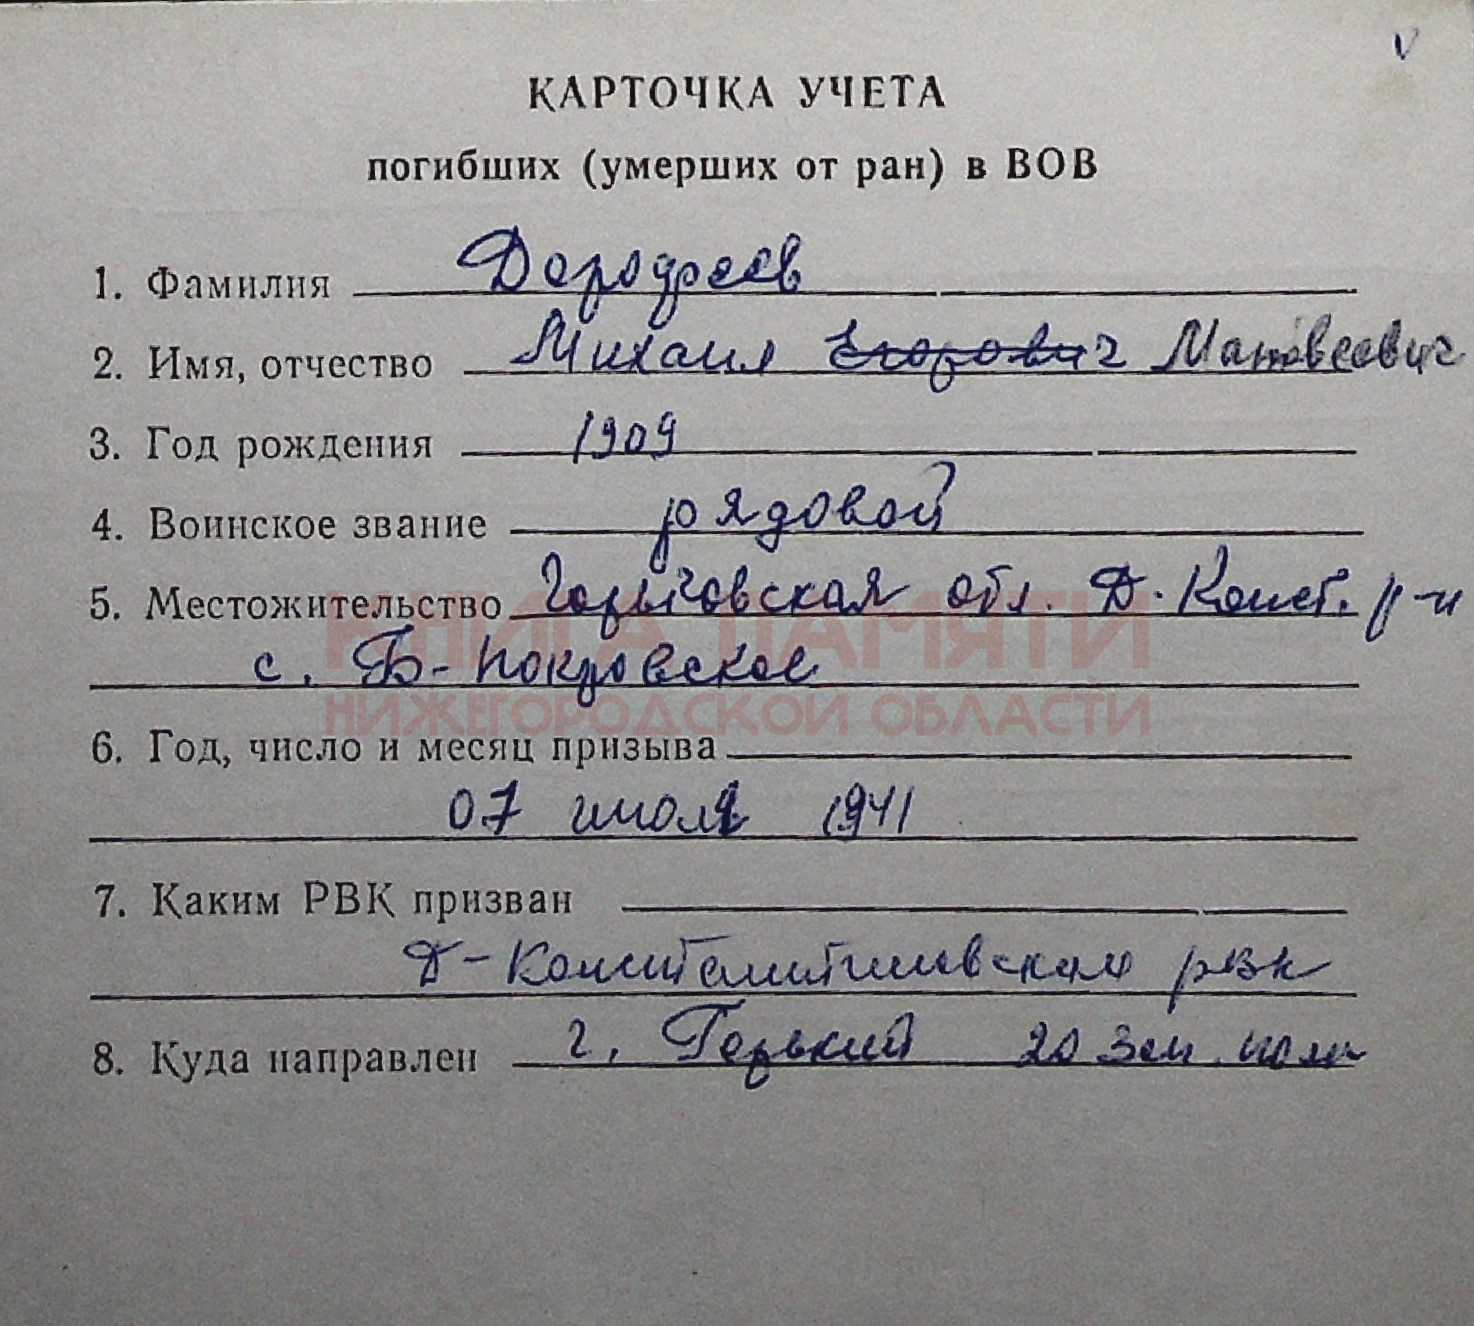 V
КАРТОЧКА УЧЕТА
погибших (умерших от ран) в ВОВ
1. Фамилия Дорофеев
2. Имя, отчество Михаил Егорович Матвеевич
3. Год рождения 1909
4. Воинское звание рядовой
5. Местожительство Горьковская обл. Д. Конст. р-н
КНИГА ПАМЯТИ
с. Б-Покровское
НИЖЕГОРОДСКОЙ ОБЛАСТИ
6. Год, число и месяц призыва
07 июля 1941
7. Каким РВК призван
Д-Константиновским рвк
8. Куда направлен г. Горький 20 зен. полк